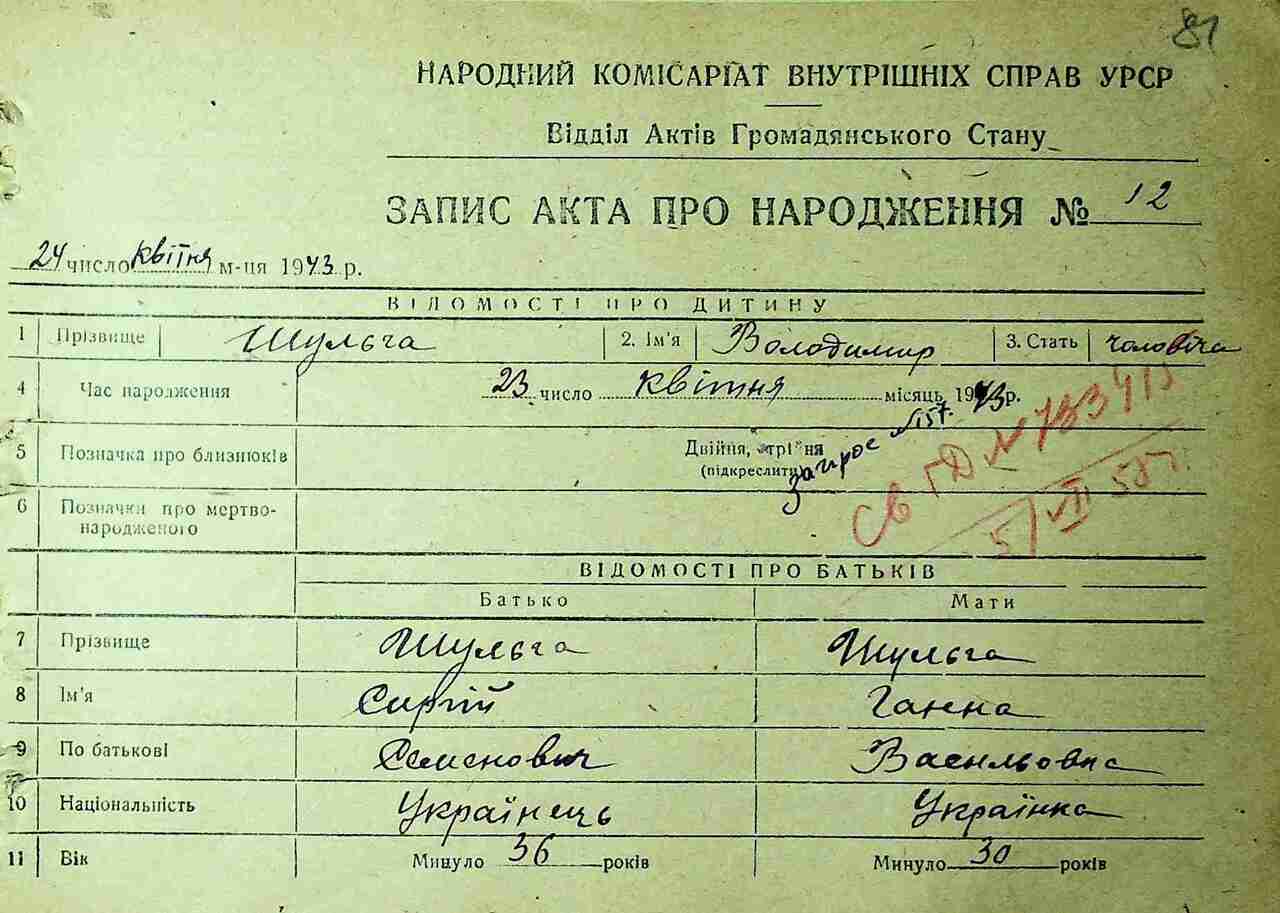 81
НАРОДНИЙ КОМІСАРІАТ ВНУТРІШНІХ СПРАВ УРСР
Відділ Актів Громадянського Стану
ЗАПИС АКТА ПРО НАРОДЖЕННЯ № 12
24 число квітня м-ця 1943 р.
ВІДОМОСТІ ПРО ДИТИНУ
1 Прізвище Шульга 2. Ім'я Володимир 3. Стать чоловіча
4 Час народження 23 число квітня місяць 1943 р.
5 Позначка про близнюків Двійня, трійня
(підкреслити)
запрос №157.
Св ГД №
5/VII 58г.
6 Позначки про мертво-
народженого
ВІДОМОСТІ ПРО БАТЬКІВ
Батько Мати
7 Прізвище Шульга Шульга
8 Ім'я Сиргій Ганна
9 По батькові Семенович Васильовна
10 Національність Українець Українка
11 Вік Минуло 36 років Минуло 30 років